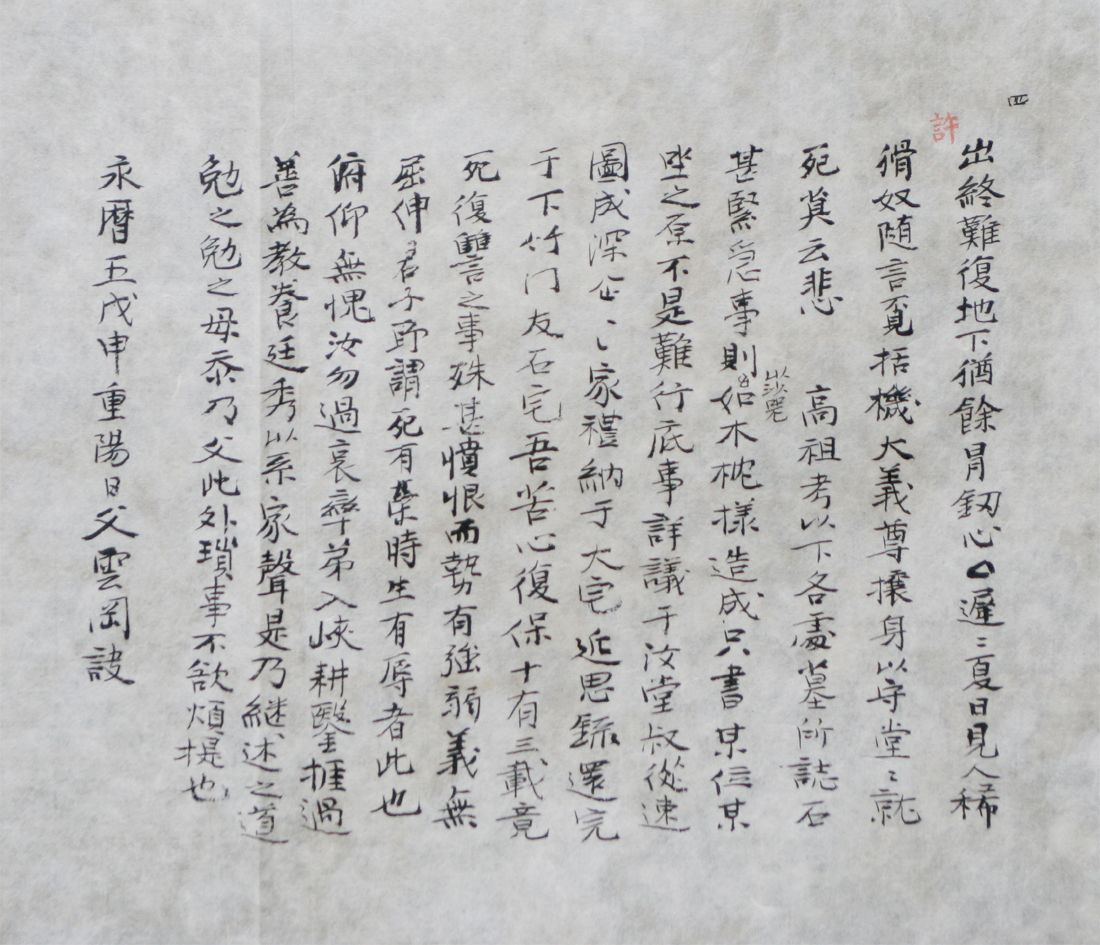 四
許
出終難復地下猶餘冐釼心 遲〻夏日見人稀
猾奴随言覔括機大義尊攘身以守堂〻就
死奠云悲 高祖考以下各處墓所誌石
甚緊急事則 如木枕樣造成只書某位某
以沙
坐之原不是難行底事詳議于汝堂叔從速
圖成深企〻家禮納于大宅近思録還完
于下竹门友石宅吾苦心復保十有三載竟
死復讐言之事殊甚憤恨而勢有強弱義無
屈伸君子所謂死有榮時生有辱者此也
俯仰無愧汝勿過哀率弟入峽耕鑿捱過
善為教養廷秀以系家聲是乃継述之道
勉之勉之毋忝乃父此外瑣事不欲煩提也
永曆五戊申重陽日父雲岡訣